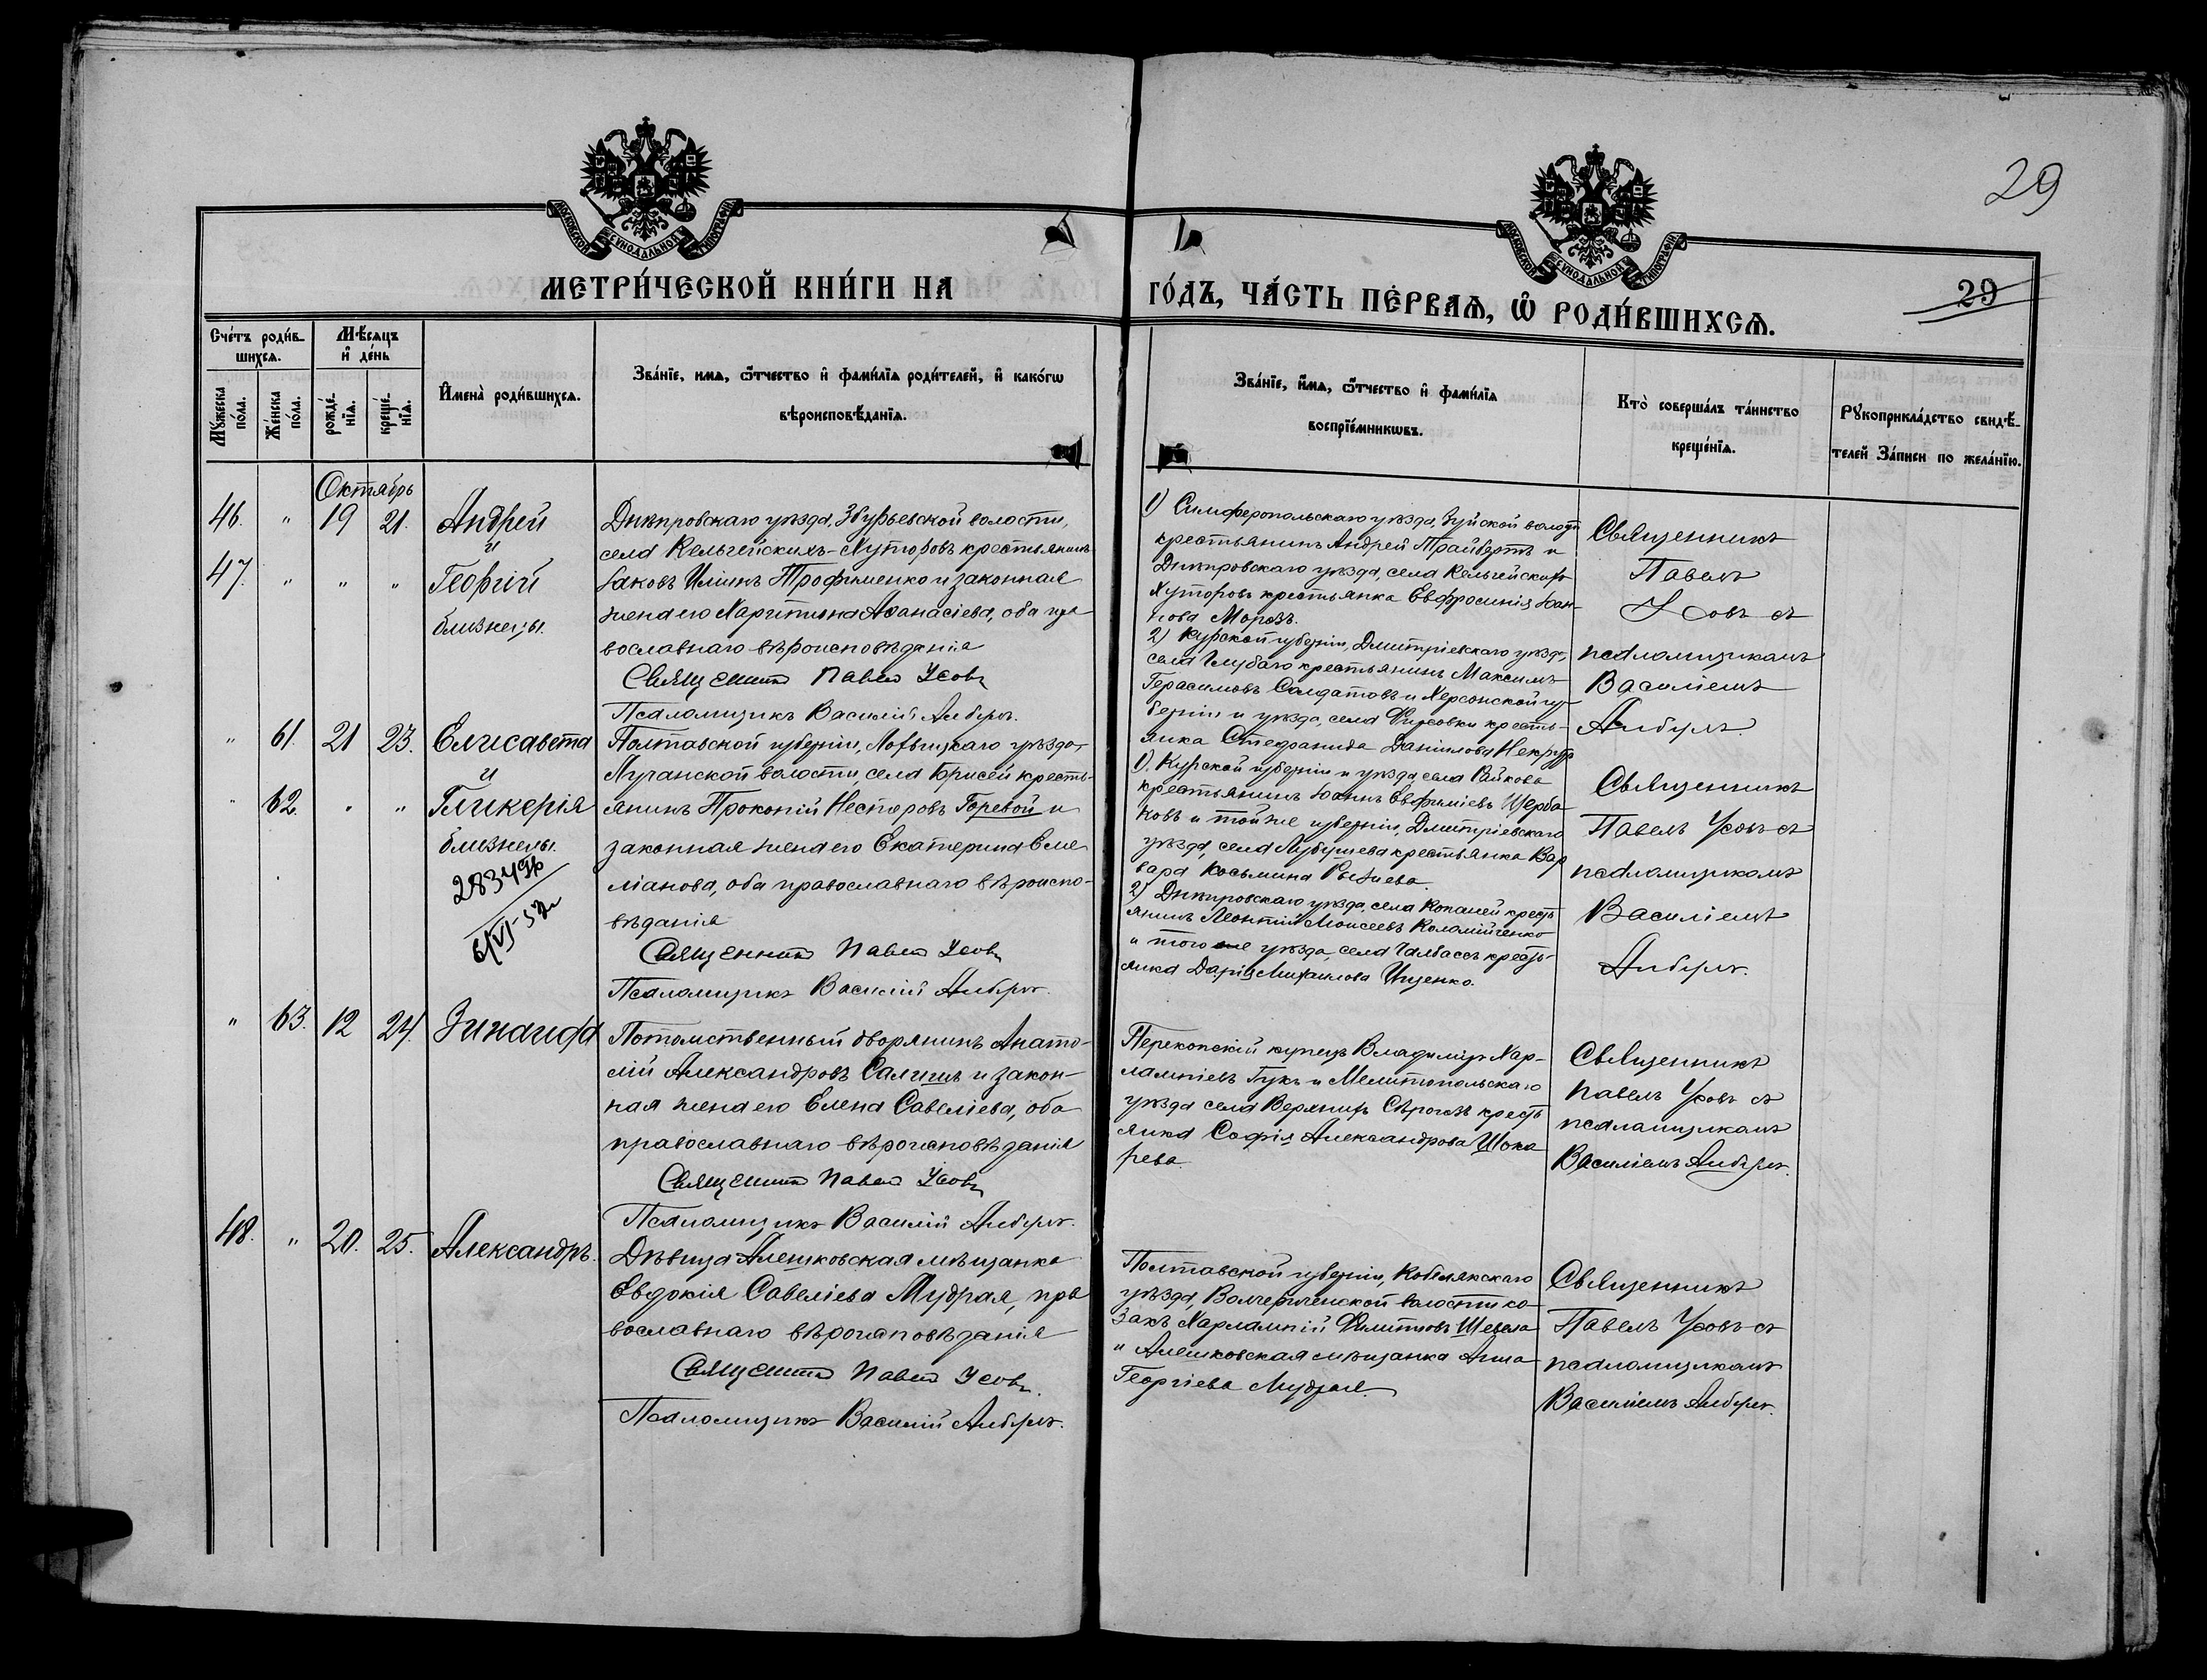 29
29
МОСКОВСКОЙ СѴНОДАЛЬНОЙ ТИПОГРАФІИ
МОСКОВСКОЙ СѴНОДАЛЬНОЙ ТИПОГРАФІИ
МЕТРИ́ЧЕСКОЙ КНИ́ГИ НА
ГО́ДЪ, ЧА́СТЬ ПЕ́РВАѦ, Ѡ҆ РОДИ́ВШИХСѦ.
Сче́тъ роди́в-
шихсѧ.
Мѣ́сѧцъ
и҆ де́нь
Мꙋ́жеска
по́ла.
Же́нска
по́ла.
рожде́-
нїѧ.
креще́-
нїѧ.
И҆мена̀ роди́вшихсѧ.
Зва́нїе, и҆мѧ, ѻ҆́тчество и҆ фами́лїѧ роди́телей, и҆ како́гѡ
вѣроисповѣ́данїѧ.
Зва́нїе, и҆́мѧ, ѻ҆́тчество и҆ фами́лїѧ
воспрїе́мникѡвъ.
Кто̀ соверша́лъ та́инство
креще́нїѧ.
Рꙋкоприкла́дство свидѣ́-
телей За́писи по жела́нїю.
Октябрь
46. " 19 21. Андрей
и
47. " " " Георгій
близнецы.
Днѣпровскаго уѣзда, Збурьевской волости,
села Кельгейскихъ-Хуторовъ крестьянинъ
Іаковъ Иліинъ Трофименко и законная
жена его Харитина Аѳанасіева, оба пра-
вославнаго вѣроисповѣданія
Священникъ Павелъ Усовъ
Псаломщикъ Василій Албулъ.
1) Симферопольскаго уѣзда, Зуйской волости
крестьянинъ Андрей Трайбертъ и
Днѣпровскаго уѣзда, села Кельгейскихъ
Хуторовъ крестьянка Евфросинія Іоан-
нова Морозъ.
2) Курской губерніи, Дмитріевскаго уѣзда,
села Глубаго крестьянинъ Максимъ
Герасимовъ Солдатовъ и Херсонской гу-
берніи и уѣзда, села Фирсовки кресть-
янка Стефанида Даніилова
Священникъ
Павелъ
Усовъ съ
псаломщикомъ
Василіемъ
Албулъ.
" 61. 21 23. Елисавета
и
" 62. " " Гликерія
близнецы.
Полтавской губерніи, Лохвицкаго уѣзда,
Луганской волости, села Брисей кресть-
янинъ Прокопій Несторовъ Горевой и
законная жена его Екатерина Еме-
ліанова, оба православнаго вѣроиспо-
вѣданія
Священникъ Павелъ Усовъ
Псаломщикъ Василій Албулъ.
1). Курской губерніи и уѣзда, села Райкова
крестьянинъ Іоаннъ Евфиміевъ Щерба-
ковъ и той же губерніи, Дмитріевскаго
уѣзда, села крестьянка Вар
вара Косьмина
2) Днѣпровскаго уѣзда, села Копаней кресть
янинъ Леонтій Моисеевъ Коломійченко
и того же уѣзда, села Чалбассъ кресть-
янка Дарія Михаилова Ищенко.
Священникъ
Павелъ Усовъ съ
псаломщикомъ
Василіемъ
Албулъ.
" 63. 12 24. Зинаида
Потомственный дворянинъ Анато-
лій Александровъ Салгинъ и закон-
ная жена его Елена Савеліева, оба
православнаго вѣроисповѣданія
Священникъ Павелъ Усовъ
Псаломщикъ Василій Албулъ.
Перекопскій купецъ Владиміръ Хар-
лампіевъ Гукъ и Мелитопольскаго
уѣзда села Верхнихъ Сѣрогозъ кресть
янка Софія Александрова Шока
рева.
Священникъ
Павелъ Усовъ съ
псаломщикомъ
Василіемъ Албулъ.
48. " 20. 25. Александръ.
Дѣвица Алешковская мѣщанка
Евдокія Савеліева Мудрая, пра
вославнаго вѣроисповѣданія
Священникъ Павелъ Усовъ.
Псаломщикъ Василій Албулъ.
Полтавской губерніи, Кобелякскаго
уѣзда, волости ко-
закъ Харлампій Филиповъ Шевела
и Алешковская мѣщанка Анна
Георгіева Мудрая.
Священникъ
Павелъ Усовъ съ
псаломщикомъ
Василіемъ Албулъ.